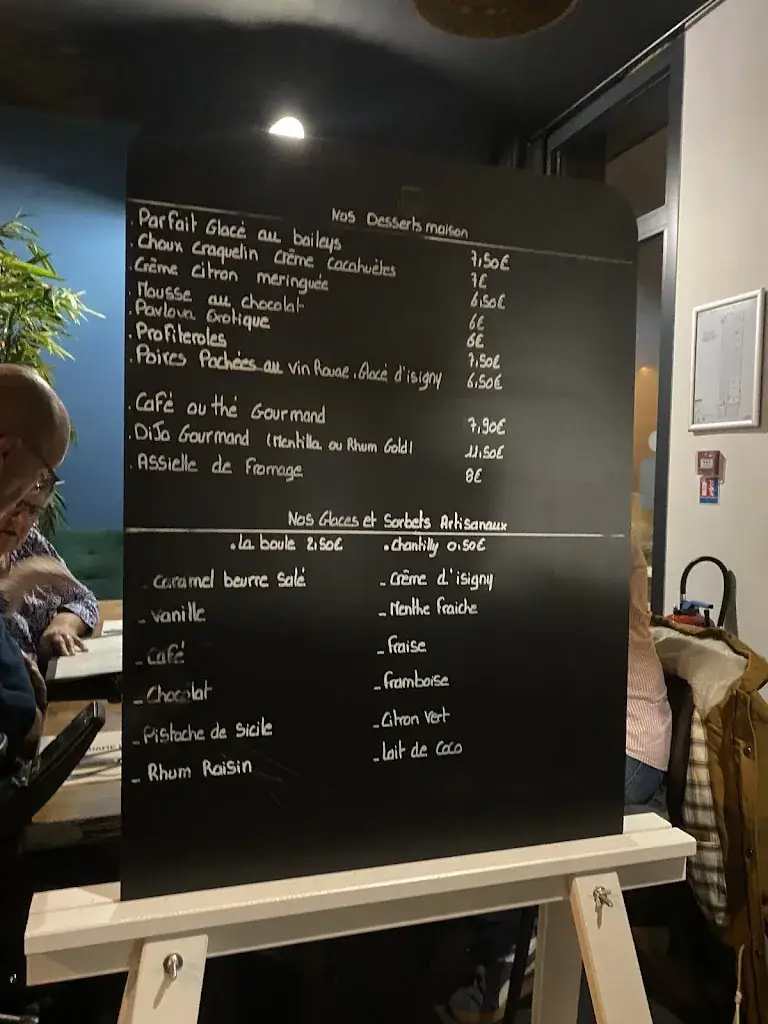 Nos Desserts maison
. Parfait Glacé au baileys 7,50€
. Choux craquelin crème cacahuètes 7€
. Crème citron meringuée 6,50€
. Mousse au chocolat 6€
. Pavlova Exotique 6€
. Profiteroles 7,50€
. Poires Pochées au vin Rouge, Glace d'isigny 6,50€
. Café ou thé Gourmand 7,90€
. DiJo Gourmand (Mentilla ou Rhum Gold) 11,50€
. Assielle de Fromage 8€
Nos Glaces et Sorbets Artisanaux
. La boule 2,50€ . Chantilly 0,50€
_ Caramel beurre salé _ Crème d'isigny
_ Vanille _ Menthe fraiche
_ Café _ fraise
_ Chocolat _ framboise
_ Pistache de Sicile _ Citron Vert
_ Rhum Raisin _ lait de coco